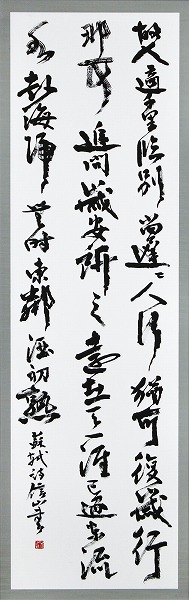 故人適千里臨別尚遲々人行猶可復歲行
那可追問歲安所之遠在天一涯已逐東流
水赴海歸無時東鄰酒初熟蘇軾詩